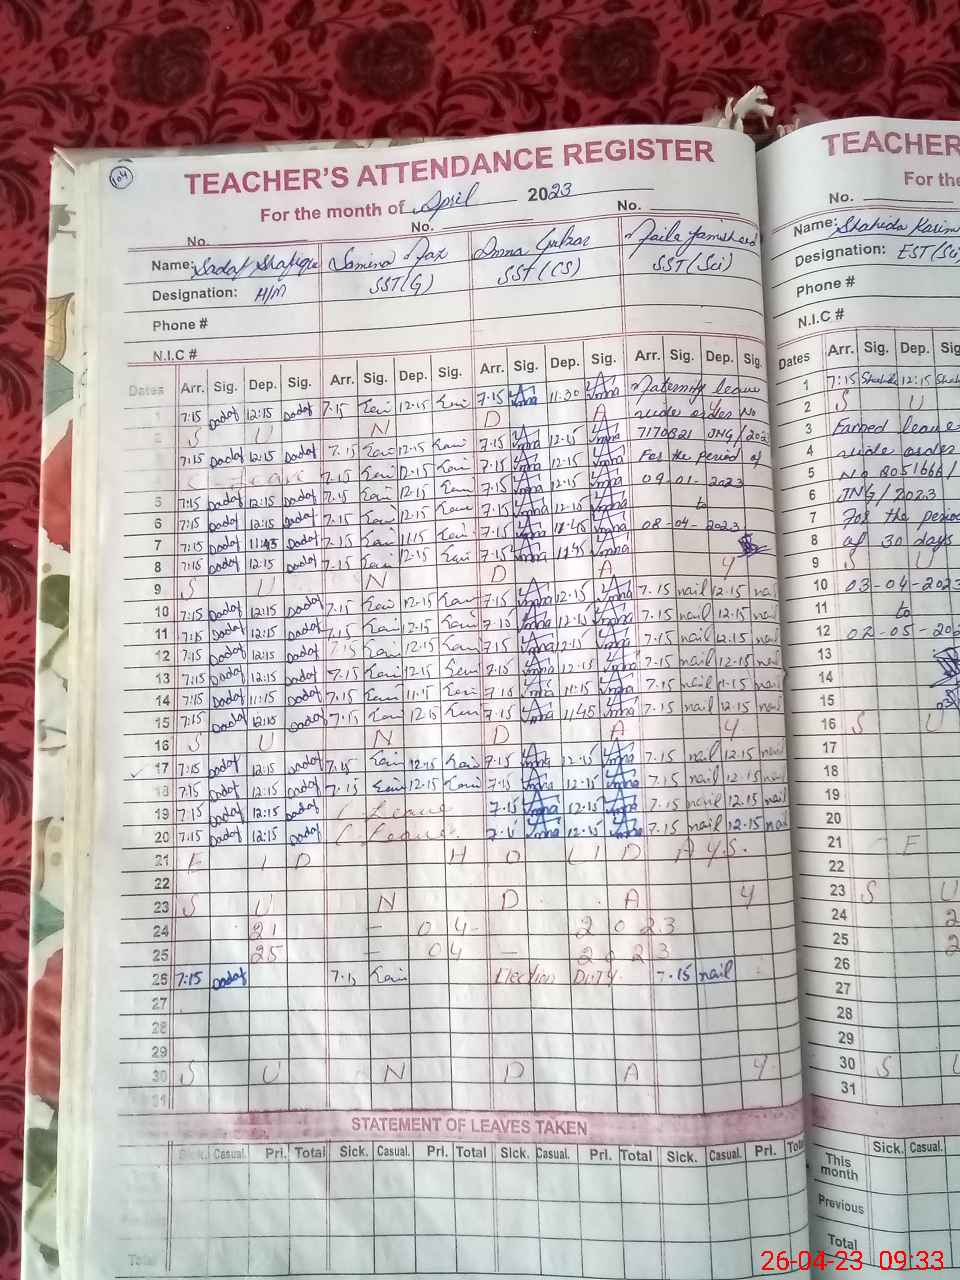 104
TEACHER'S ATTENDANCE REGISTER
For the month of April 2023
No. No. No.
Name: Sadaf Shafique Samina Naz Amna Gulzar Naila Jamsheed
Designation: H/M SST(G) SST(CS) SST(Sci)
Phone #
N.I.C #
Dates Arr. Sig. Dep. Sig. Arr. Sig. Dep. Sig. Arr. Sig. Dep. Sig. Arr. Sig. Dep. Sig.
1 7:15 Sadaf 12:15 Sadaf 7.15 12.15 7.15 Amna 11:30 Amna Maternity leave
2 S U N D A vide order No
7:15 Sadaf 12:15 Sadaf 7.15 12.15 7.15 Amna 12.15 Amna 7170821 JNG/202
4 C. Leave 7.15 12.15 7.15 Amna 12.15 Amna For the period of
5 7:15 Sadaf 12:15 Sadaf 7.15 12.15 7.15 Amna 12.15 Amna 09-01-2023
6 7:15 Sadaf 12:15 Sadaf 7.15 12.15 7.15 Amna 12.15 Amna to
7 7:15 Sadaf 11:45 Sadaf 7.15 11.15 7.15 Amna 11.45 Amna 08-04-2023
8 7:15 Sadaf 12:15 Sadaf 7.15 12.15 7.15 Amna 11.45 Amna
9 S U N D A Y
10 7:15 Sadaf 12:15 Sadaf 7.15 12.15 7.15 Amna 12.15 Amna 7.15 nail 12.15 nail
11 7:15 Sadaf 12:15 Sadaf 7.15 12.15 7.15 Amna 12.15 Amna 7.15 nail 12.15 nail
12 7:15 Sadaf 12:15 Sadaf 7.15 12.15 7.15 Amna 12.15 Amna 7.15 nail 12.15 nail
13 7:15 Sadaf 12:15 Sadaf 7.15 12.15 7.15 Amna 12.15 Amna 7.15 nail 12.15 nail
14 7:15 Sadaf 11:15 Sadaf 7.15 11.15 7.15 Amna 11.15 Amna 7.15 nail 11.15 nail
15 7:15 Sadaf 12:15 Sadaf 7.15 12.15 7.15 Amna 11.45 Amna 7.15 nail 12.15 nail
16 S U N D A Y
17 7:15 Sadaf 12:15 Sadaf 7.15 12.15 7.15 Amna 12.15 Amna 7.15 nail 12.15 nail
18 7:15 Sadaf 12:15 Sadaf 7.15 12.15 7.15 Amna 12.15 Amna 7.15 nail 12.15 nail
19 7:15 Sadaf 12:15 Sadaf C. Leave 7.15 Amna 12.15 Amna 7.15 nail 12.15 nail
20 7:15 Sadaf 12:15 Sadaf C. Leave 7.15 Amna 12.15 Amna 7.15 nail 12.15 nail
21 E I D H O L I D A Y S.
22
23 S U N D A Y
24 21 - 04 - 2023
25 25 - 04 - 2023
26 7:15 Sadaf 7.15 Election Duty. 7.15 nail
27
28
29
30 S U N D A Y
31
STATEMENT OF LEAVES TAKEN
Sick. Casual. Pri. Total Sick. Casual. Pri. Total Sick. Casual. Pri. Total Sick. Casual. Pri. Total
Total
TEACHER
For the
No.
Name: Shahida Karim
Designation: EST(Sci
Phone #
N.I.C #
Dates Arr. Sig. Dep. Sig
1 7:15 12:15
2 S U
3 Earned leave
4 vide order
5 No 8051666/
6 JNG/2023
7 For the period
8 of 30 days
9 S U
10 03-04-2023
11 to
12 02-05-202
13
14
15
16 S U
17
18
19
20
21 E
22
23 S U
24 2
25 2
26
27
28
29
30 S U
31
Sick. Casual.
This month
Previous
Total
26-04-23 09:33